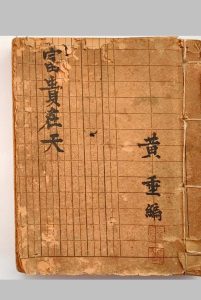 富貴在天
黄重編